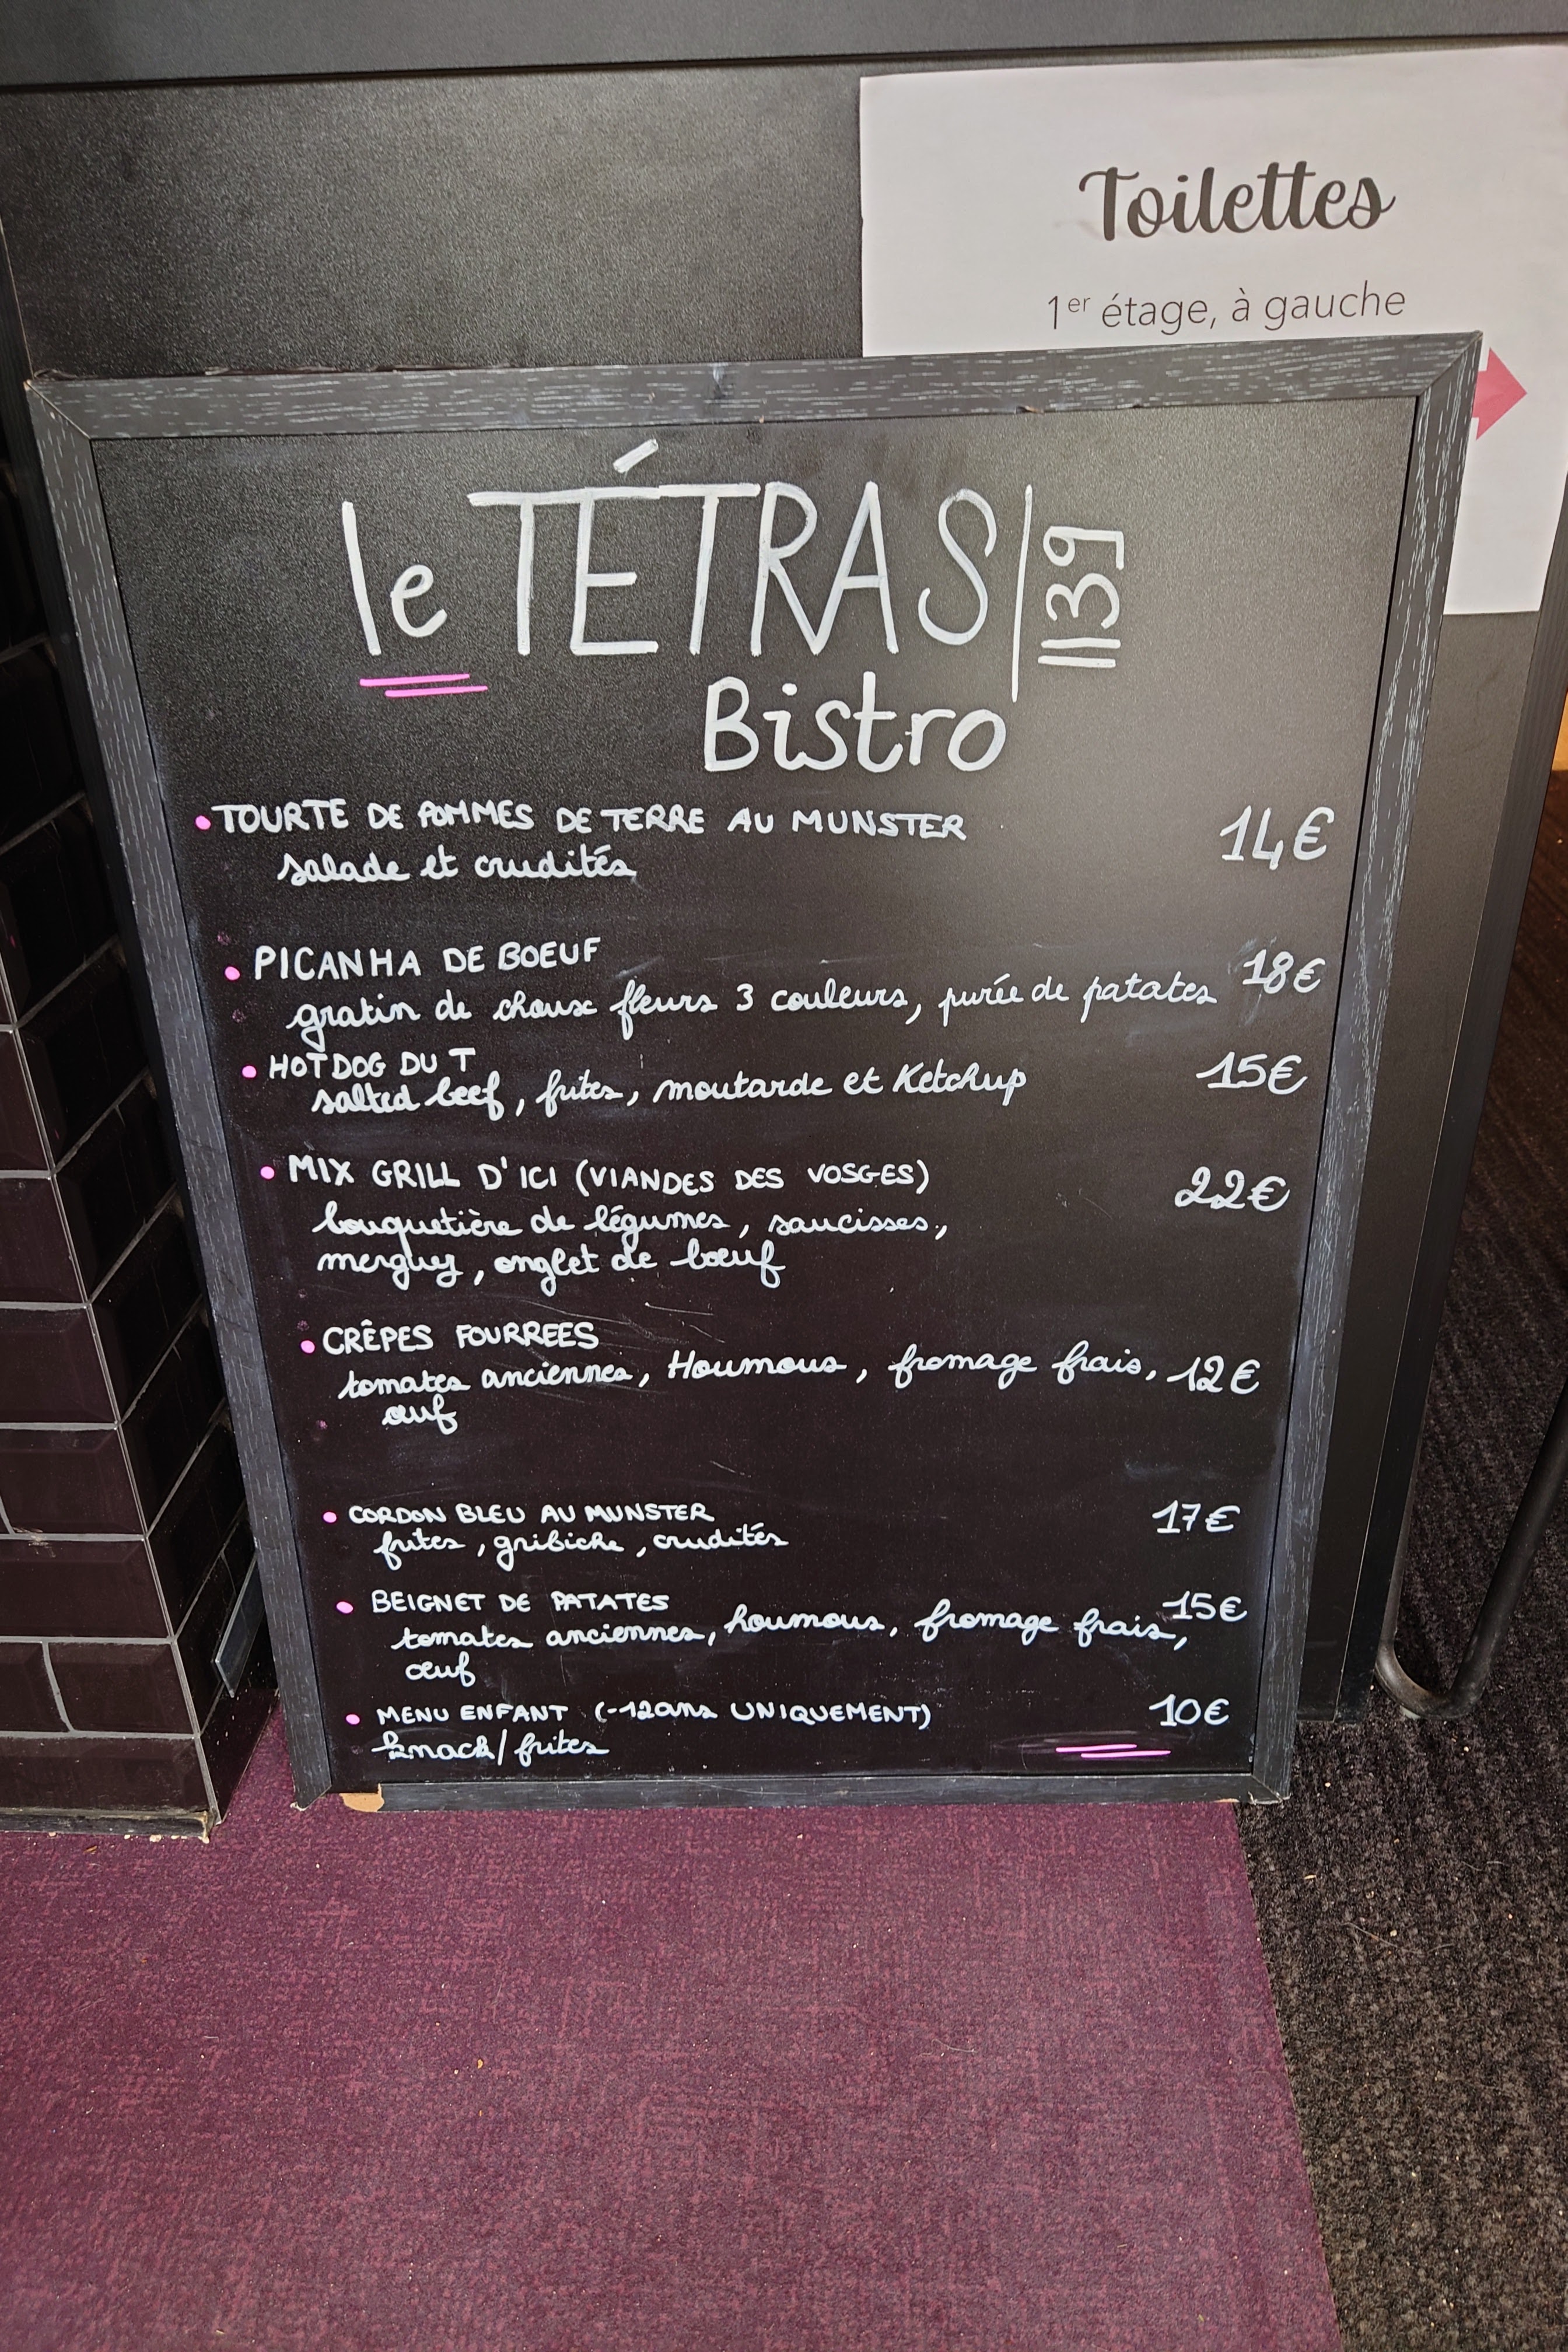 Toilettes
1er étage, à gauche
le TÉTRAS 1139
Bistro
TOURTE DE POMMES DE TERRE AU MUNSTER 14€
salade et crudités
PICANHA DE BOEUF 18€
gratin de choux fleurs 3 couleurs, purée de patates
HOTDOG DU T 15€
salted beef, frites, moutarde et Ketchup
MIX GRILL D'ICI (VIANDES DES VOSGES) 22€
bouquetière de légumes, saucisses,
merguez, onglet de bœuf
CRÊPES FOURREES
tomates anciennes, Houmous, fromage frais, 12€
œuf
CORDON BLEU AU MUNSTER 17€
frites, gribiche, crudités
BEIGNET DE PATATES 15€
tomates anciennes, houmous, fromage frais,
œuf
MENU ENFANT (-12ans UNIQUEMENT) 10€
knack/frites